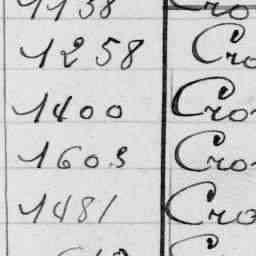 1138 Cro
1258 Cro
1400 Cro
1603 Cro
1481 Cro